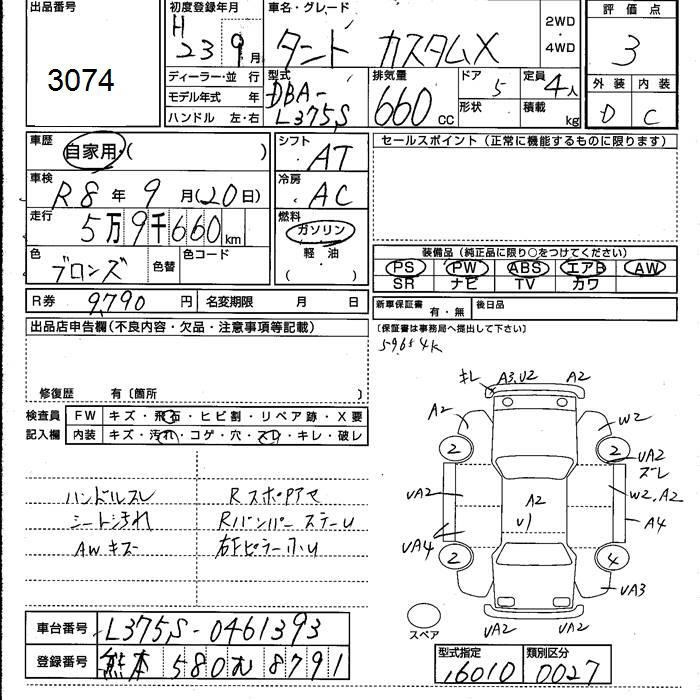 出品番号
3074
初度登録年月
H 23 9月
車名・グレード
タント カスタムX
2WD
・
4WD
評価点
3
ディーラー・並行
モデル年式 年
ハンドル 左・右
型式
DBA-
L375S
排気量
660 cc
ドア
5
形状
定員
4人
積載
kg
外装 内装
D C
車歴
自家用・( )
シフト
AT
セールスポイント (正常に機能するものに限ります)
車検
R8年 9月(20日)
冷房
AC
走行
5万9千660km
燃料
ガソリン
軽油
( )
色
ブロンズ
色替
色コード
装備品 (純正品に限り○をつけてください)
PS PW ABS エアB AW
SR ナビ TV カワ
R券 9,790円
名変期限 月 日
新車保証書
有・無
後日品
(保証書は事務局へ提出して下さい)
59654K
出品店申告欄(不良内容・欠品・注意事項等記載)
修復歴 有〔箇所 〕
検査員
記入欄
FW キズ・飛石・ヒビ割・リペア跡・X要
内装 キズ・汚れ・コゲ・穴・スレ・キレ・破レ
ハンドルスレ
シート汚れ
AWキズ
RスポPアセ
RバンパーステーU
右FピラーホU
キレ A3,U2 A2
A2 W2
2 2
UA2
ズレ
UA2 A2 W2,A2
U1 A4
UA4
2 4
UA3
UA2 UA2
スペア
車台番号 L375S-0461393
登録番号 熊本 580 む 8791
型式指定 類別区分
16010 0027